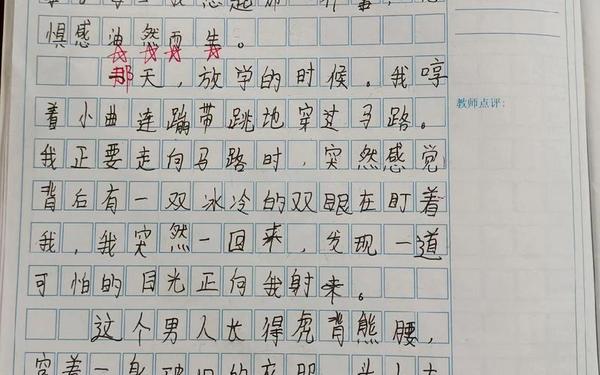 惧感油然而生。
那天，放学的时候。我哼
着小曲连蹦带跳地穿过马路。
我正要走向马路时，突然感觉
背后有一双冰冷的双眼在盯着
我，我突然一回来，发现一道
可怕的目光正向我射来。
这个男人长得虎背熊腰，
穿着一身破旧的衣服
教师点评：